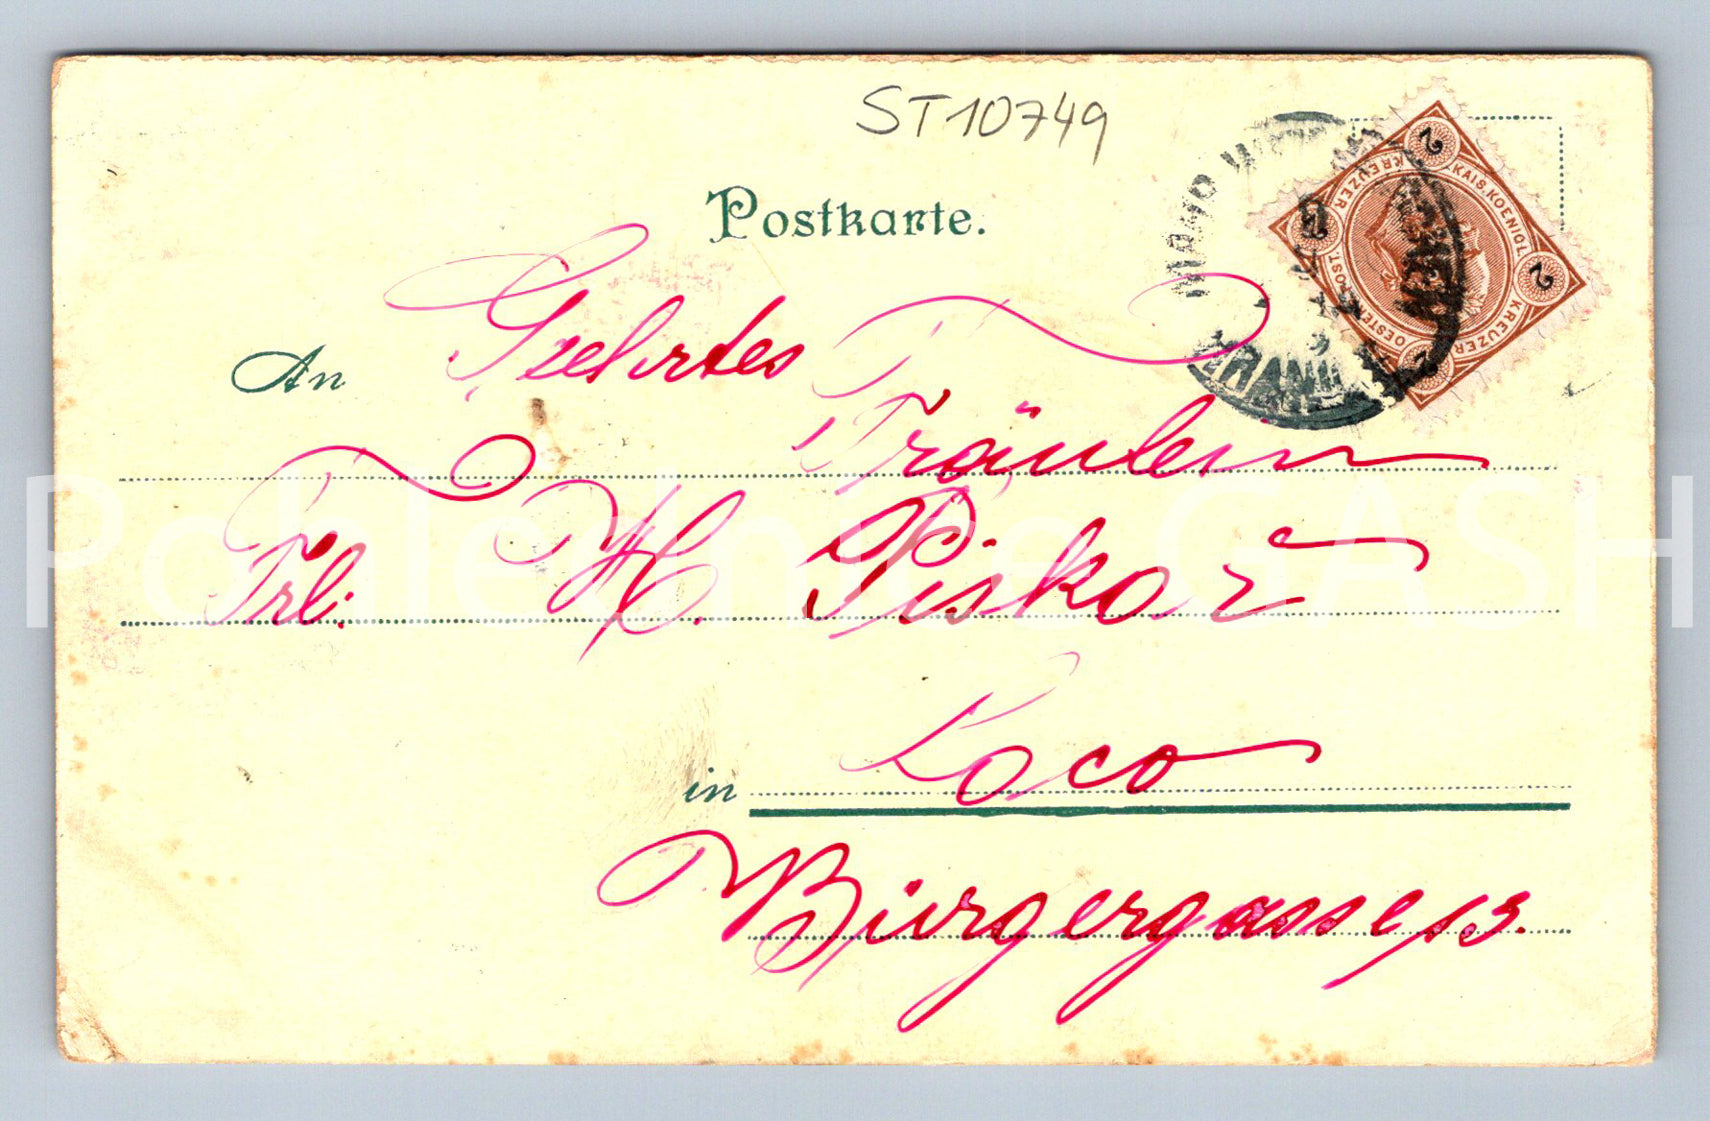 ST10749
Postkarte.
An Geehrtes
Fräulein
Frl. H. Piskař
in Loco
Bürgergasse 13.
2 KREUZER 2
KAIS. KOENIGL.
OESTERR. POST.
KREUZER 2
Pohlednice GASH